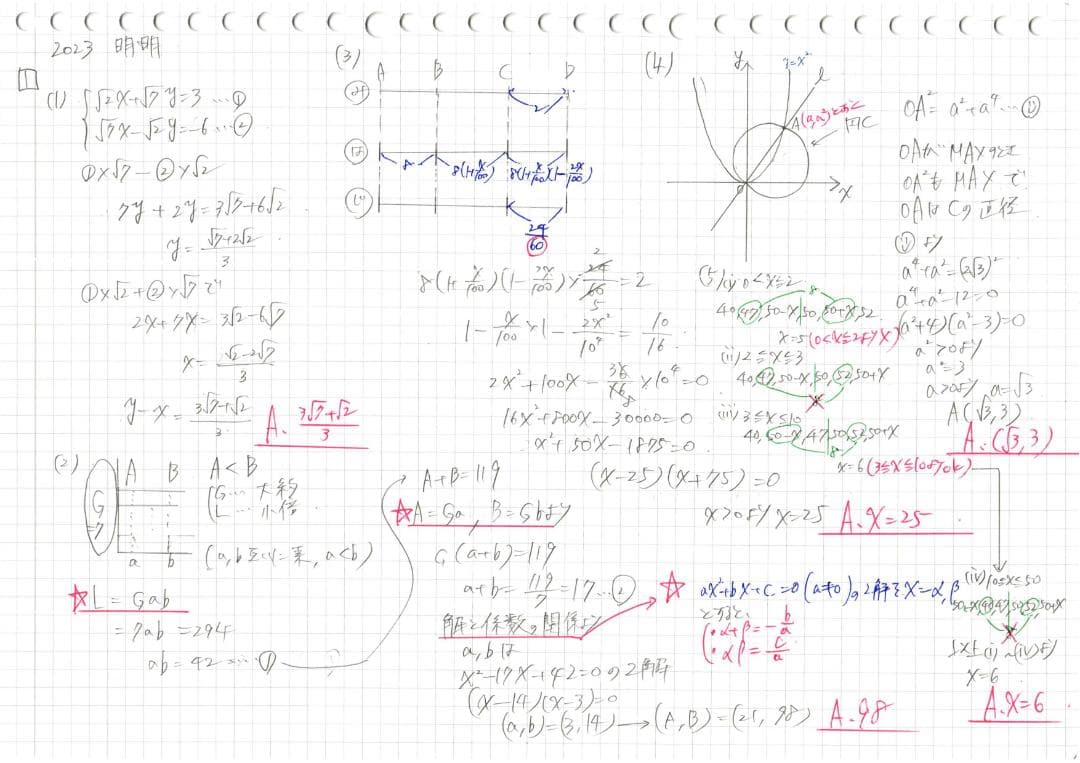 2023 明明
1
(1) { √2x+√7y=3 … ①
√7x-√2y=-6 … ②
①×√7-②×√2
7y+2y=3√7+6√2
y=(√7+2√2)/3
①×√2+②×√7で
2x+7x=3√2-6√7
x=(√2-2√7)/3
y-x=(3√7+√2)/3
A. (3√7+√2)/3
(2)
A B A<B
G=7
G… 大約
L… 小倍
a b (a,b互いに素, a<b)
☆L=Gab
=7ab=294
ab=42 … ①
A+B=119
☆A=Ga, B=Gbより
G(a+b)=119
a+b=119/7=17 … ②
解と係数の関係より
a,bは
x²-17x+42=0の2解
(x-14)(x-3)=0
(a,b)=(3,14)→(A,B)=(21,98) A.98
☆ ax²+bx+c=0(a≠0)の2解をx=α,β
とすると、
・α+β=-b/a
・αβ=c/a
(3)
A B C D
み 2
は 8 8(1+x/100) 8(1+x/100)(1-2x/100)
じ 24/60
8(1+x/100)(1-2x/100)×24/60=2
2
5
1-x/100×1-2x²/10⁴=10/16
2x²+100x-36/16×10⁴=0
8
16x²+800x-30000=0
x²+50x-1875=0
(x-25)(x+75)=0
x>0よりx=25 A.x=25
(4)
y y=x² l
A(a,a²)とおく
円C
O x
OA²=a²+a⁴ … ①
OAがMAXのとき
OA²もMAXで
OAはCの直径
①より
a⁴+a²=(2√3)²
a⁴+a²-12=0
(a²+4)(a²-3)=0
a²>0より
a²=3
a>0より, a=√3
A(√3,3)
A.(√3,3)
(5)(i) 0<x≦2
8
40,47,50-x|50,50+x,52
x=5(0<x≦2より×)
(ii) 2≦x≦3
40,47,50-x|50,52,50+x
×
(iii) 3≦x≦10
40,50-x,47|50,52,50+x
8
x=6(3≦x≦10よりok)
(iv)10≦x≦50
50-x,40,47|50,52,50+x
×
以上(i)~(iv)より
x=6
A.x=6